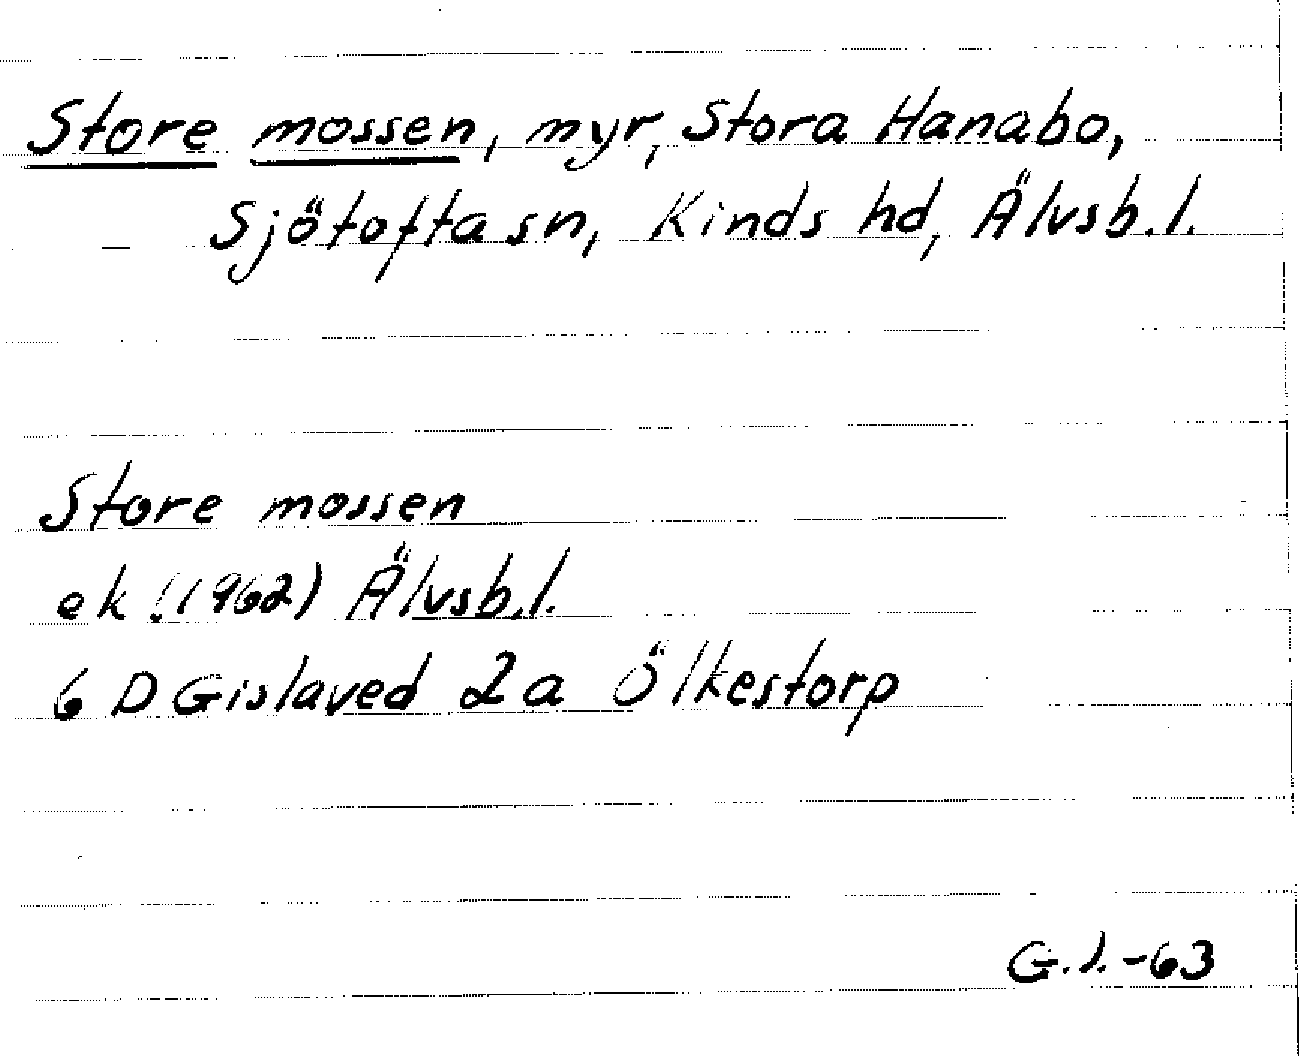 Store mossen, myr, Stora Hanabo,
Sjötofta sn, Kinds hd, Älvsb.l.
Store mossen
ek !(1962) Älvsb.l.
6 D Gislaved 2a Ölkestorp
G.l.-63